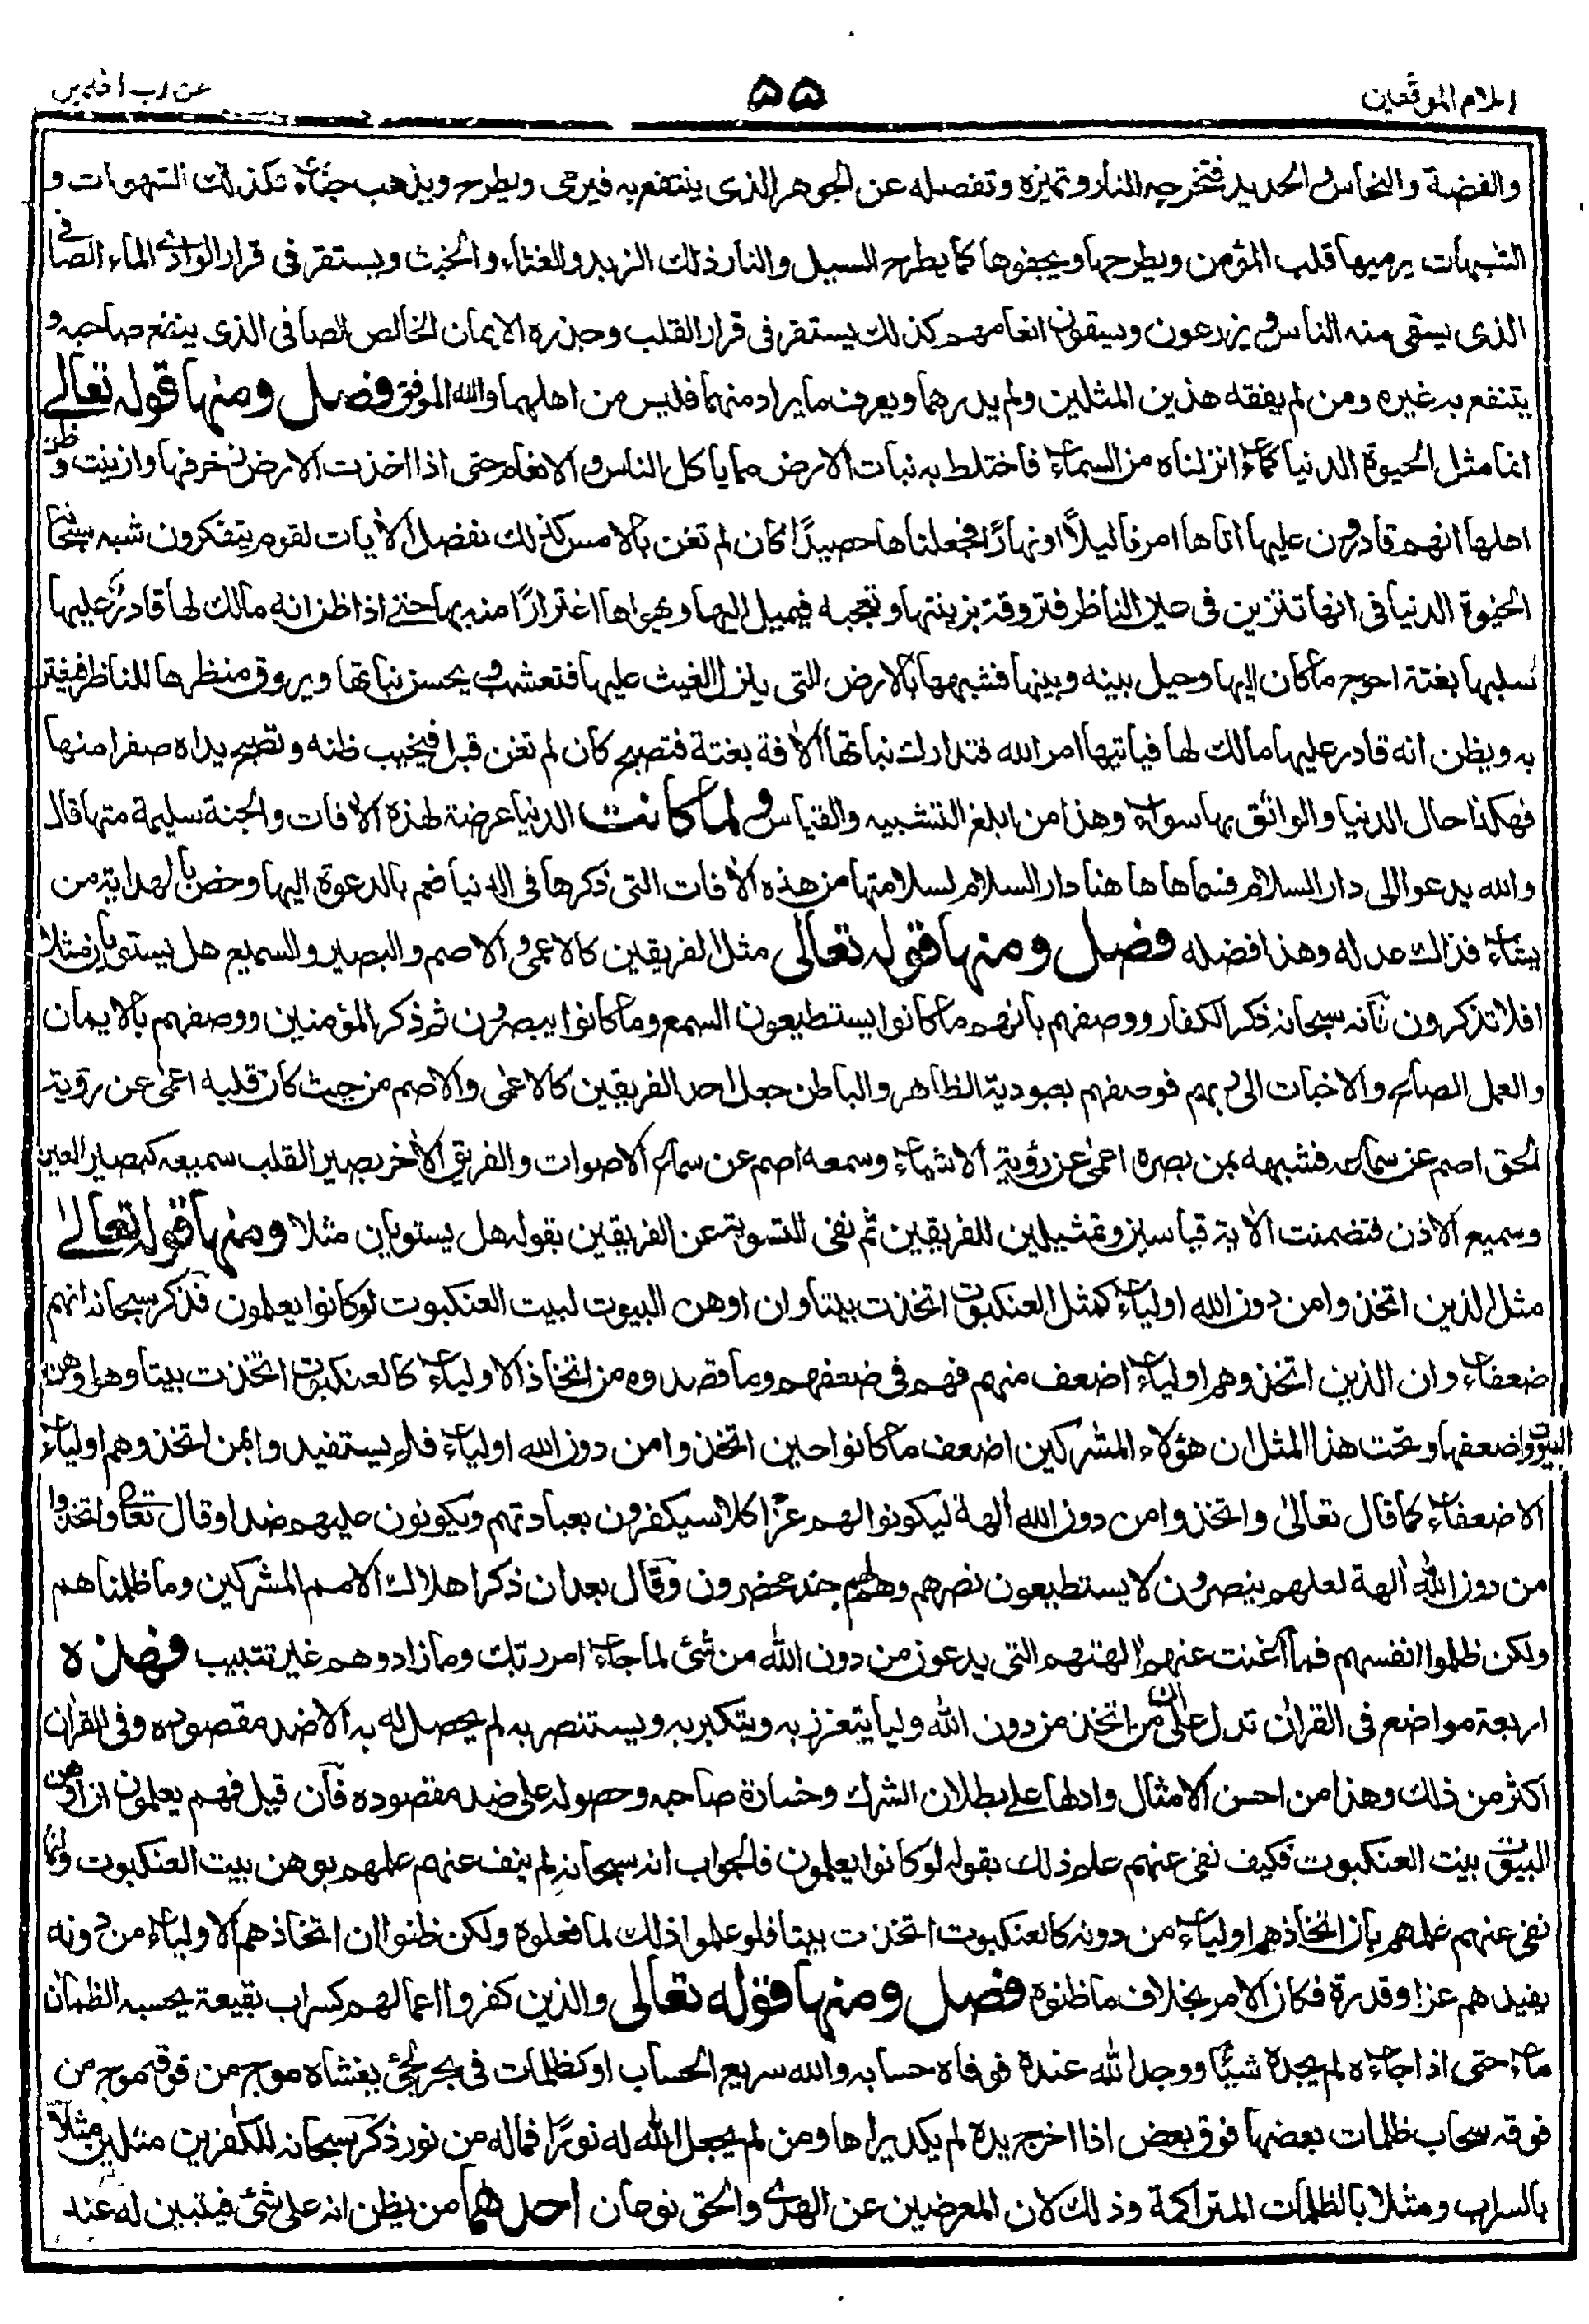 اعلام الموقعين
۵۵
عن رب العلمين
والفضة والنحاس والحديد فتخرجه النار وتميزه وتفصله عن الجوهر الذى ينتفع به فيرمى ويطرح ويذهب جفاء فكذلك الشهوات و
الشبهات يرميها قلب المؤمن ويطرحها ويجفوها كما يطرح السيل والنار ذلك الزبد والغثاء والخبث ويستقر فى قرار الوادى الماء الصافى
الذى يسقى منه الناس ويزرعون ويسقون انعامهم كذلك يستقر فى قرار القلب وجذره الايمان الخالص الصافى الذى ينفع صاحبه و
ينتفع به غيره ومن لم يفقه هذين المثلين ولم يدبرهما ويعرف ما يراد منهما فليس من اهلهما والله الموفق فصل ومنها قوله تعالى
انما مثل الحيوة الدنيا كماء انزلناه من السماء فاختلط به نبات الارض مما ياكل الناس والانعام حتى اذا اخذت الارض زخرفها وازينت وظن
اهلها انهم قادرون عليها اتاها امرنا ليلاً او نهارًا فجعلناها حصيدًا كان لم تغن بالامس كذلك نفصل الأيات لقوم يتفكرون شبه سبحانه
الحيوة الدنيا فى انها تتزين فى عين الناظر فتروقه بزينتها وتعجبه فيميل اليها ويهواها اغترارًا منه بها حتى اذا ظن انه مالك لها قادر عليها
سلبها بغتة احوج ما كان اليها وحيل بينه وبينها فشبهها بالارض التى ينزل الغيث عليها فتعشب ويحسن نباتها ويروق منظرها للناظر فيغتر
به ويظن انه قادر عليها مالك لها فياتيها امر الله فتدارك نباتها الأفة بغتة فتصبح كان لم تغن قبل فيخيب ظنه وتصبح يداه صفرا منها
فهكذا حال الدنيا والواثق بها سواء وهذا من ابلغ التشبيه والقياس ولما كانت الدنيا عرضة لهذه الأفات والجنة سليمة منها قال
والله يدعوا الى دار السلام فسماها ها هنا دار السلام لسلامتها من هذه الأفات التى ذكرها فى الدنيا فعم بالدعوة اليها وخص بالهداية من
يشاء فذاك عدله وهذا فضله فصل ومنها قوله تعالى مثل الفريقين كالاعمى والاصم والبصير والسميع هل يستويان مثلا
افلا تذكرون فانه سبحانه ذكر الكفار ووصفهم بانهم ما كانوا يستطيعون السمع وما كانوا يبصرون ثم ذكر المؤمنين ووصفهم بالايمان
والعمل الصالح والاخبات الى ربهم فوصفهم بعبودية الظاهر والباطن جعل احد الفريقين كالاعمى والاصم من حيث كان قلبه اعمى عن رؤية
الحق اصم عن سماعه فشبهه بمن بصره اعمى عن رؤية الاشياء وسمعه اصم عن سماع الاصوات والفريق الأخر بصير القلب سميعه كبصير العين
وسميع الاذن فتضمنت الأية قياسين وتمثيلين للفريقين ثم نفى التسوية عن الفريقين بقوله هل يستويان مثلا ومنها قوله تعالى
مثل الذين اتخذوا من دون الله اولياء كمثل العنكبوت اتخذت بيتا وان اوهن البيوت لبيت العنكبوت لو كانوا يعلمون فذكر سبحانه انهم
ضعفاء وان الذين اتخذوهم اولياء اضعف منهم فهم فى ضعفهم وما قصدوه من اتخاذ الاولياء كالعنكبوت اتخذت بيتا وهو اوهن
البيوت واضعفها وتحت هذا المثل ان هؤلاء المشركين اضعف ما كانوا حين اتخذوا من دون الله اولياء فلم يستفيدوا بمن اتخذوهم اولياء
الا ضعفاء كما قال تعالى واتخذوا من دون الله ألهة ليكونوا لهم عزًا كلا سيكفرون بعبادتهم ويكونون عليهم ضدا وقال تعالى واتخذوا
من دون الله ألهة لعلهم ينصرون لا يستطيعون نصرهم وهم لهم جند محضرون وقال بعد ان ذكر اهلاك الامم المشركين وما ظلمناهم
ولكن ظلموا انفسهم فما أغنت عنهم ألهتهم التى يدعون من دون الله من شئ لما جاء امر ربك وما زادوهم غير تتبيب فهذه
اربعة مواضع فى القران تدل على ان من اتخذ من دون الله وليا يتعزز به ويتكبر به ويستنصر به لم يحصل له به الا ضد مقصوده وفى القران
اكثر من ذلك وهذا من احسن الامثال وادلها على بطلان الشرك وخسارة صاحبه وحصوله على ضد مقصوده فان قيل فهم يعلمون ان اوهن
البيوت بيت العنكبوت فكيف نفى عنهم علم ذلك بقوله لو كانوا يعلمون فالجواب انه سبحانه لم ينف عنهم علمهم بوهن بيت العنكبوت وانما
نفى عنهم علمهم بان اتخاذهم اولياء من دونه كالعنكبوت اتخذت بيتا فلو علموا ذلك لما فعلوه ولكن ظنوا ان اتخاذهم الاولياء من دونه
يفيدهم عزا وقدرة فكان الامر بخلاف ما ظنوه فصل ومنها قوله تعالى والذين كفروا اعمالهم كسراب بقيعة يحسبه الظمان
ماء حتى اذا جاءه لم يجده شيئًا ووجد الله عنده فوفاه حسابه والله سريع الحساب او كظلمات فى بحر لجى يغشاه موج من فوقه موج من
فوقه سحاب ظلمات بعضها فوق بعض اذا اخرج يده لم يكد يراها ومن لم يجعل الله له نورًا فما له من نور ذكر سبحانه للكافرين مثلين مثلا
بالسراب ومثلا بالظلمات المتراكمة وذلك لان المعرضين عن الهدى والحق نوعان احدهما من يظن انه على شئ فيتبين له عند